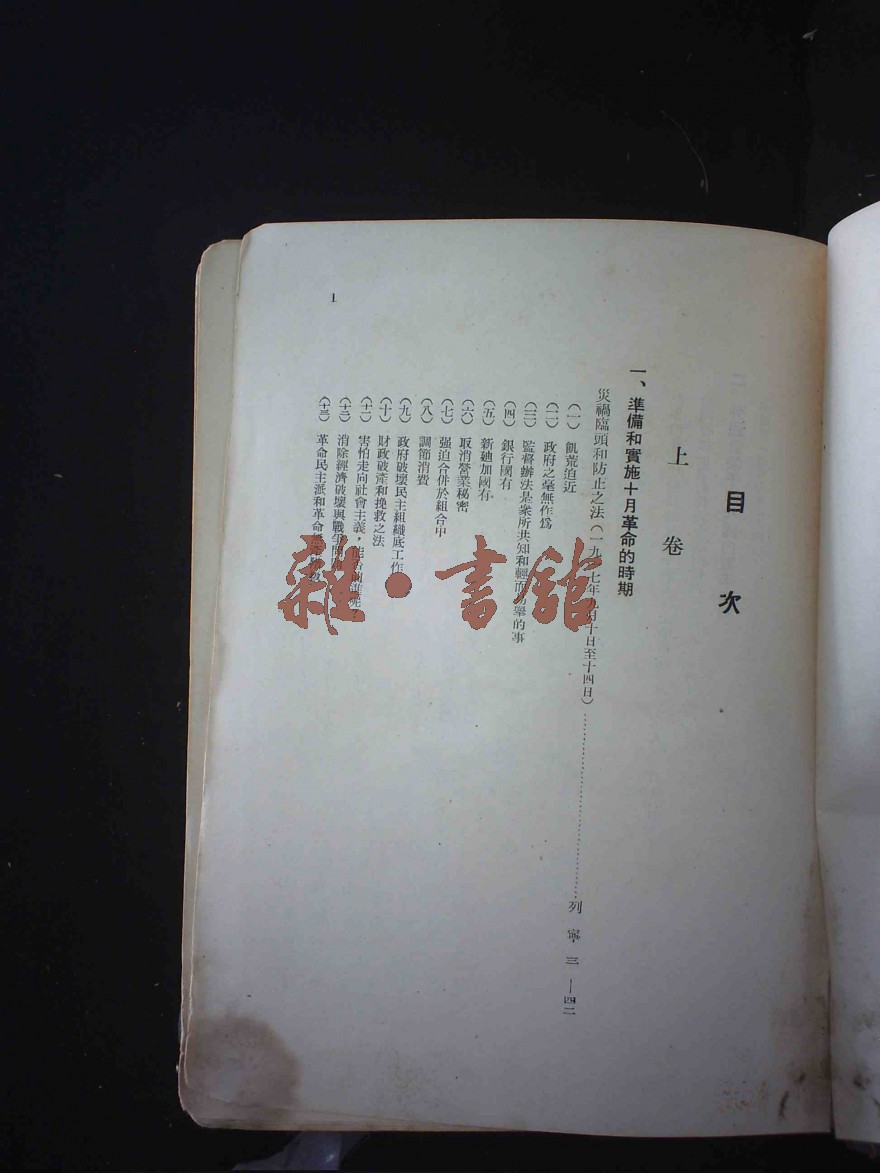 目次
上卷
一、準備和實施十月革命的時期
災禍臨頭和防止之法(一九一七年九月十日至十四日)……列寧 三—四二
(一) 飢荒迫近
(二) 政府之毫無作爲
(三) 監督辦法是衆所共知和輕而易舉的事
(四) 銀行國有
(五) 新廸加國有
(六) 取消營業秘密
(七) 强迫合併於組合中
(八) 調節消費
(九) 政府破壞民主組織底工作
(十) 財政破產和挽救之法
(十一) 害怕走向社會主義,能否前進呢
(十二) 消除經濟破壞與戰爭問題
(十三) 革命民主派和革命無產階級
1
雜·書館